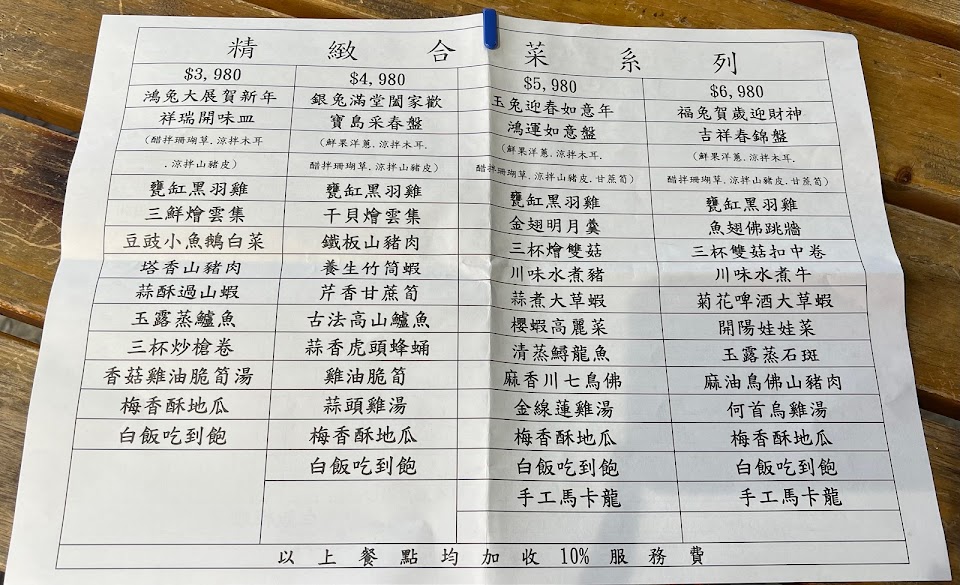 精緻合菜系列
$3,980 $4,980 $5,980 $6,980
鴻兔大展賀新年 銀兔滿堂闔家歡 玉兔迎春如意年 福兔賀歲迎財神
祥瑞開味皿 寶島采春盤 鴻運如意盤 吉祥春錦盤
(醋拌珊瑚草.涼拌木耳 (鮮果洋蔥.涼拌木耳. (鮮果洋蔥.涼拌木耳. (鮮果洋蔥.涼拌木耳.
.涼拌山豬皮) 醋拌珊瑚草.涼拌山豬皮) 醋拌珊瑚草.涼拌山豬皮.甘蔗筍) 醋拌珊瑚草.涼拌山豬皮.甘蔗筍)
甕缸黑羽雞 甕缸黑羽雞 甕缸黑羽雞 甕缸黑羽雞
三鮮燴雲集 干貝燴雲集 金翅明月羹 魚翅佛跳牆
豆豉小魚鵝白菜 鐵板山豬肉 三杯燴雙菇 三杯雙菇扣中卷
塔香山豬肉 養生竹筒蝦 川味水煮豬 川味水煮牛
蒜酥過山蝦 芹香甘蔗筍 蒜煮大草蝦 菊花啤酒大草蝦
玉露蒸鱸魚 古法高山鱸魚 櫻蝦高麗菜 開陽娃娃菜
三杯炒槍卷 蒜香虎頭蜂蛹 清蒸鱘龍魚 玉露蒸石斑
香菇雞油脆筍湯 雞油脆筍 麻香川七鳥佛 麻油鳥佛山豬肉
梅香酥地瓜 蒜頭雞湯 金線蓮雞湯 何首烏雞湯
白飯吃到飽 梅香酥地瓜 梅香酥地瓜 梅香酥地瓜
白飯吃到飽 白飯吃到飽 白飯吃到飽
手工馬卡龍 手工馬卡龍
以上餐點均加收10%服務費